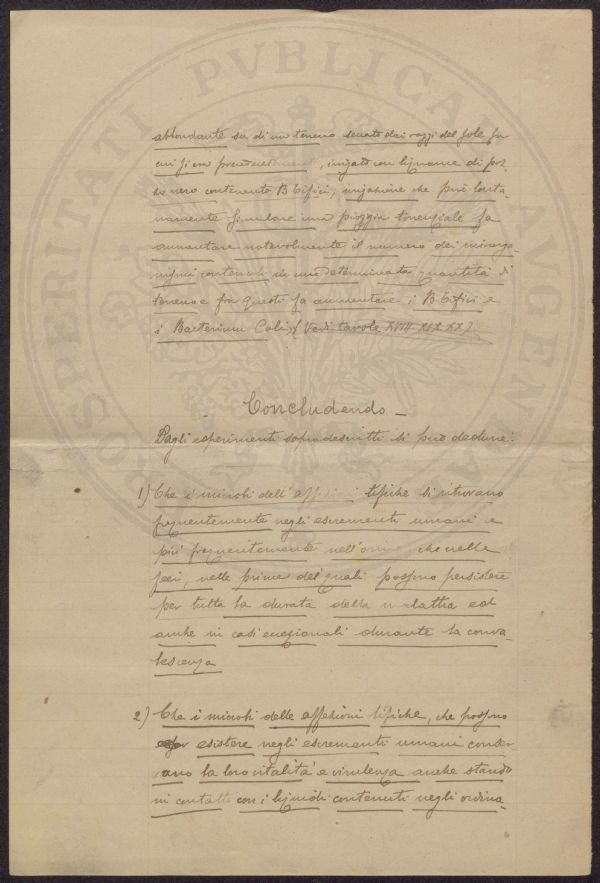 abbondante su di un terreno seccato dai raggi del sole fu
cui si era precedentement, irrigato con liquame di poz=
zo nero contenente B tifici, irrigazione che può lonta=
namente simulare una pioggia torrenziale fa
aumentare notevolmente il numero dei microrga=
nismi contenuti in una determinata quantità di
terreno e fra questi fa aumentare i B tifici e
i Bacterium Coli (Vedi tavole XVIII XIX XX)
Concludendo –
Dagli esperimenti sopradescritti si può dedurre:
1) Che i microbi dell' affezioni tifiche si ritrovano
frequentemente negli escrementi umani e
più frequentemente nell'orina che nelle
feci, nelle prime del quali possono persistere
per tutta la durata della malattia ed
anche in casi eccezionali durante la conva=
lescenza
2) Che i microbi delle affezioni tifiche, che possono
esistere negli escrementi umani conser
vano la loro vitalità e virulenza anche stando
in contatto con i liquidi contenuti negli ordina=
PROSPERITATI PVBLICAE AVGENDAE